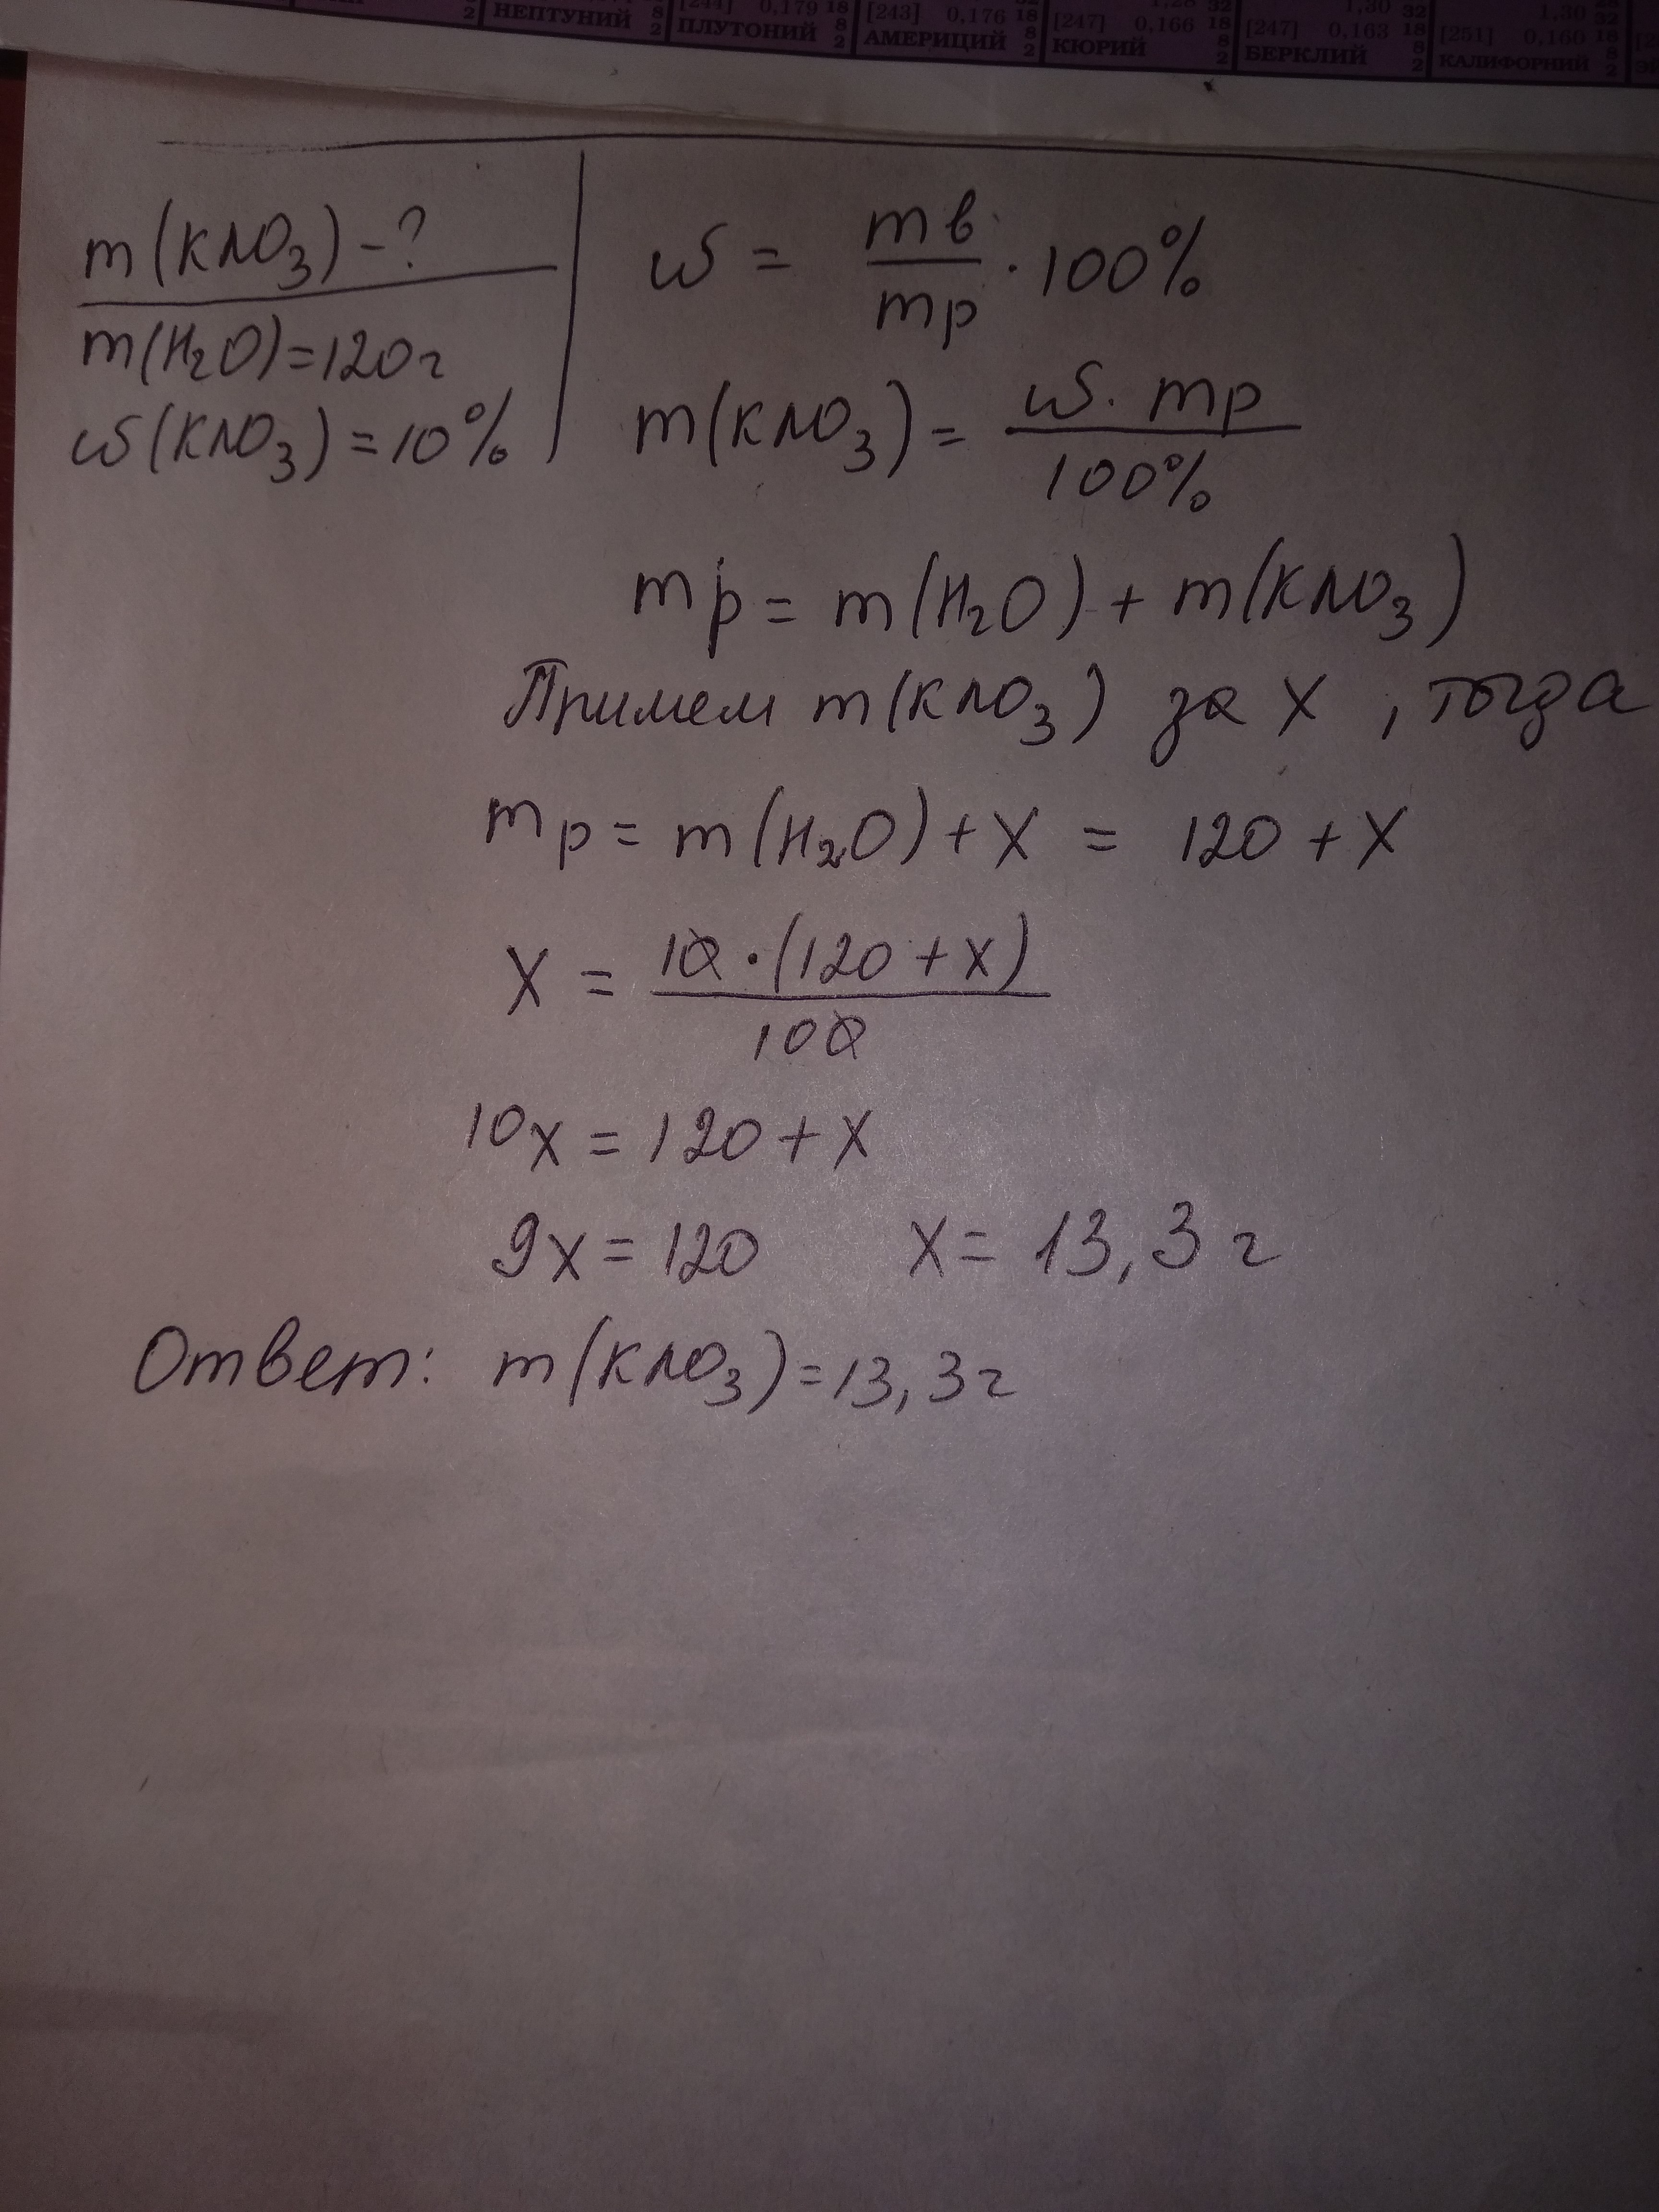 2 НЕПТУНИЙ 8 2 [244] 0,179 18 ПЛУТОНИЙ 8 2 [243] 0,176 18 АМЕРИЦИЙ 8 2 [247] 0,166 18 КЮРИЙ 8 2 [247] 0,163 18 БЕРКЛИЙ 8 2 [251] 0,160 18 КАЛИФОРНИЙ 8 2
m(KNO3) - ?
m(H2O) = 120г
ω(KNO3) = 10%
ω = mв / mр · 100%
m(KNO3) = ω · mр / 100%
mр = m(H2O) + m(KNO3)
Примем m(KNO3) за X, тогда
mр = m(H2O) + X = 120 + X
X = 10 · (120 + X) / 100
10X = 120 + X
9X = 120 X = 13,3 г
Ответ: m(KNO3) = 13,3г